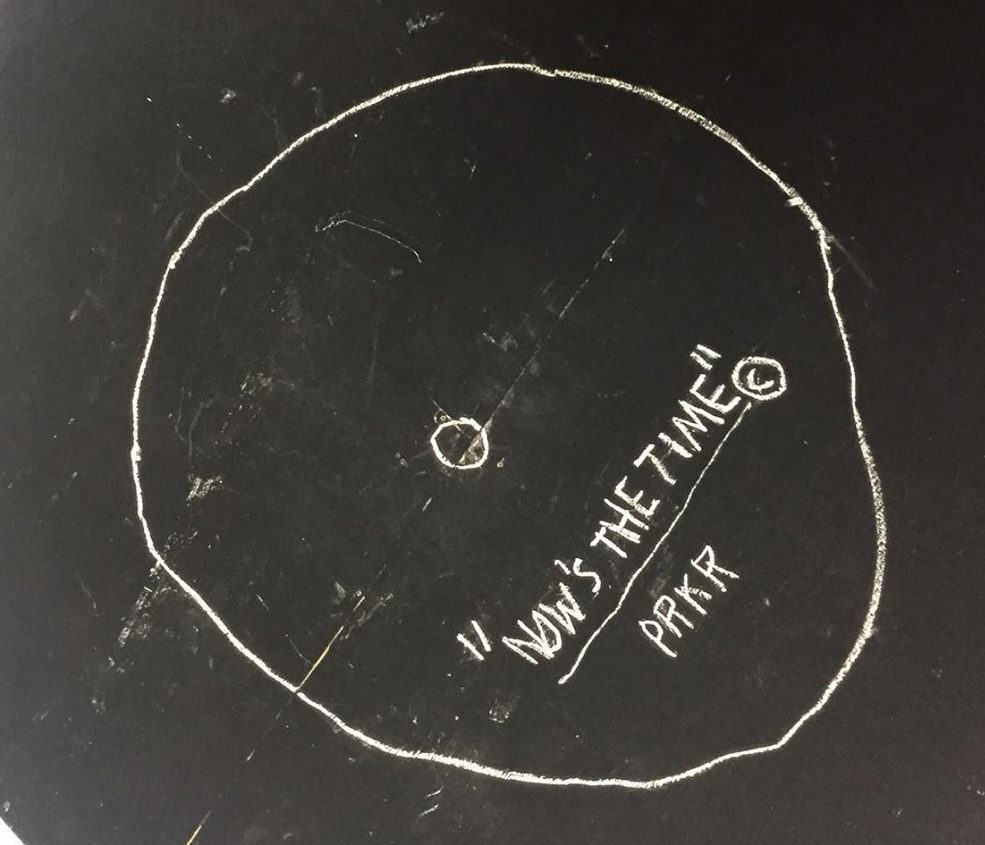 "NOW'S THE TIME"©
PRKR